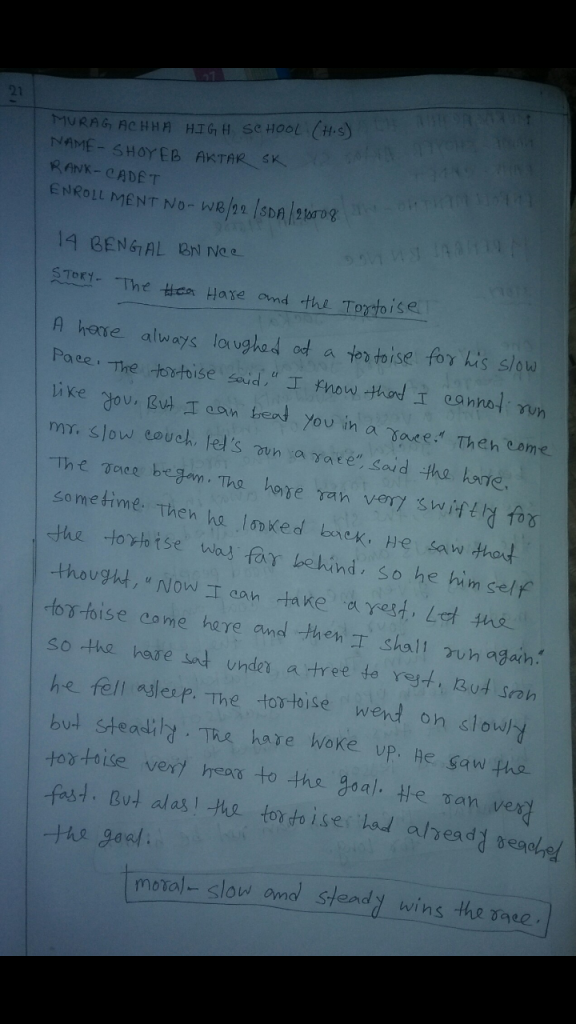 21
MURAGACHHA HIGH SCHOOL (H.S)
NAME- SHOYEB AKTAR SK
RANK- CADET
ENROLLMENT NO- WB/22/SDA/
14 BENGAL BN NCC
STORY- The Hare and the Tortoise
A hare always laughed at a tortoise for his slow
Pace. The tortoise said, "I know that I cannot run
like you. But I can beat you in a race." Then come
mr. slow couch, let's run a race", said the hare.
The race began. The hare ran very swiftly for
sometime. Then he looked back. He saw that
the tortoise was far behind. So he himself
thought, "Now I can take a rest. Let the
tortoise come here and then I shall run again."
So the hare sat under a tree to rest. But soon
he fell asleep. The tortoise went on slowly
but steadily. The hare woke up. He saw the
tortoise very near to the goal. He ran very
fast. But alas! the tortoise had already reached
the goal.
moral- slow and steady wins the race.